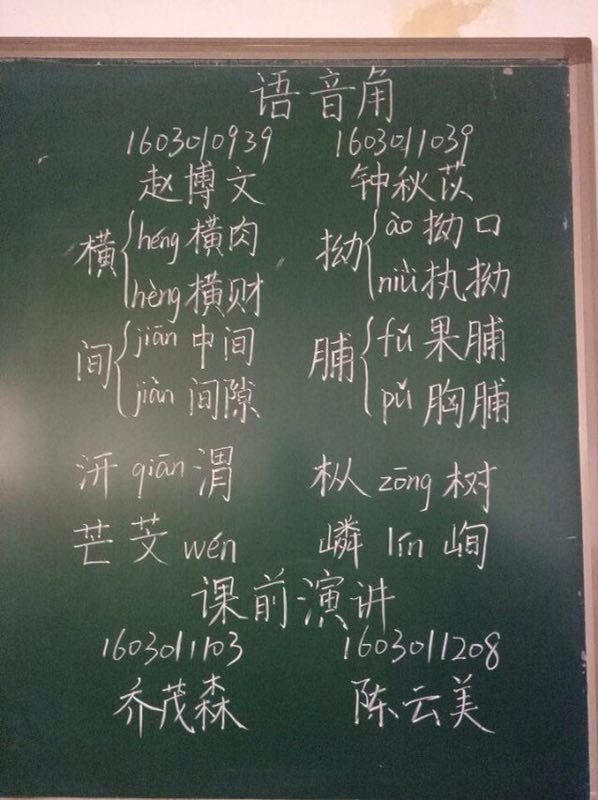 语音角
1603010939 1603011039
赵博文 钟秋苡
横 héng 横肉 拗 ào 拗口
hèng 横财 niù 执拗
间 jiān 中间 脯 fǔ 果脯
jiàn 间隙 pǔ 胸脯
汧 qiān 渭 枞 zōng 树
芒芠 wén 嶙 lín 峋
课前演讲
1603011103 1603011208
乔茂森 陈云美